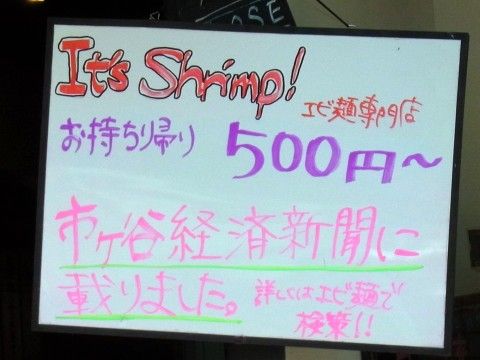 OSE
It's Shrimp!
エビ麺専門店
お持ち帰り 500円〜
市ケ谷経済新聞に
載りました。 詳しくはエビ麺で
検索!!